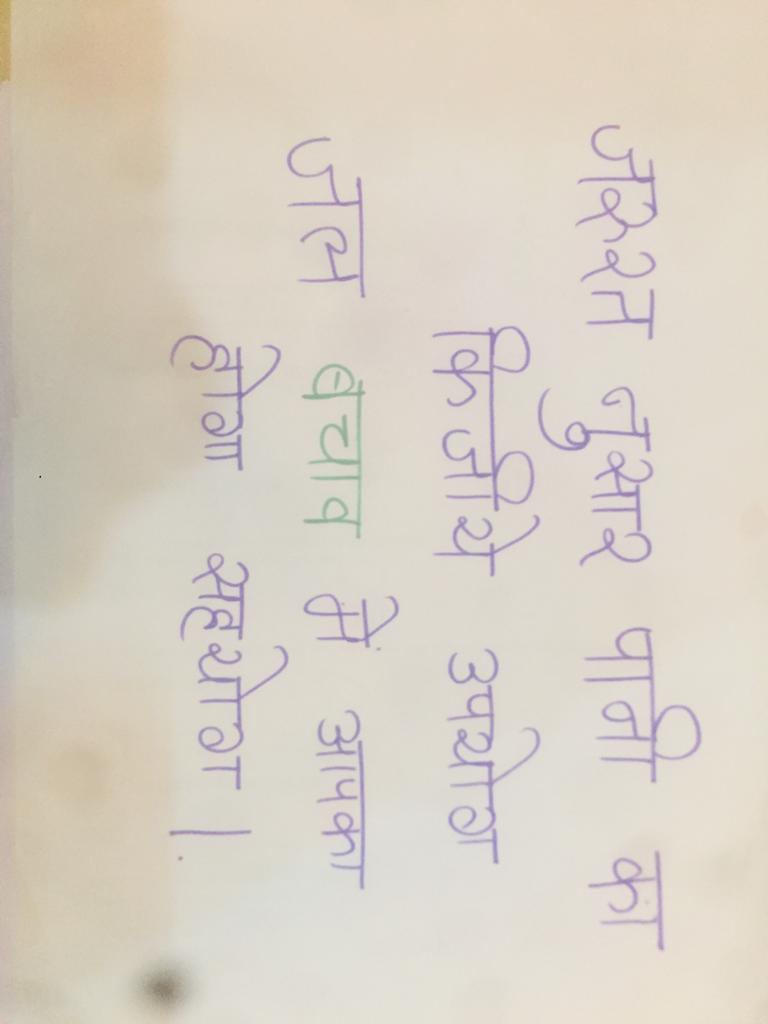 जरुरत नुसार पानी का
किजीये उपयोग
जल बचाव में आपका
होगा सहयोग।